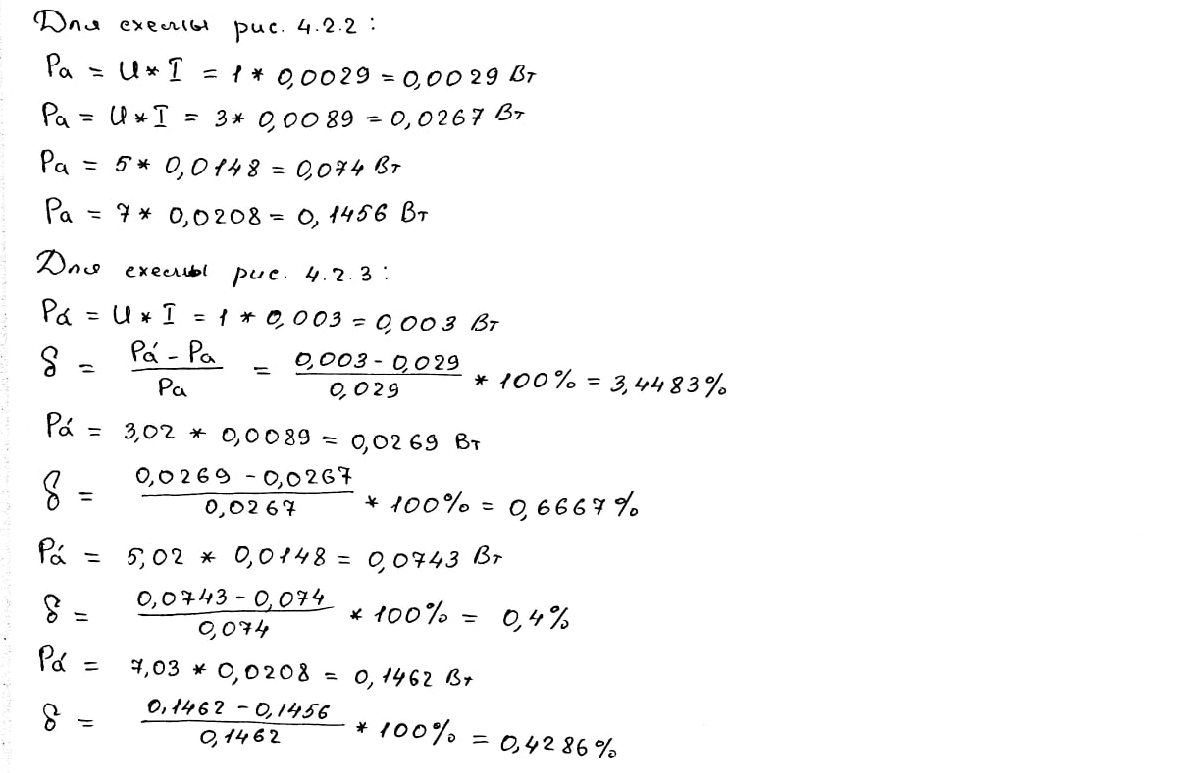 Для схемы рис. 4.2.2:
Pa = U * I = 1 * 0,0029 = 0,0029 Вт
Pa = U * I = 3 * 0,0089 = 0,0267 Вт
Pa = 5 * 0,0148 = 0,074 Вт
Pa = 7 * 0,0208 = 0,1456 Вт
Для схемы рис. 4.2.3:
Pá = U * I = 1 * 0,003 = 0,003 Вт
δ = (Pá - Pa) / Pa = (0,003 - 0,029) / 0,029 * 100% = 3,4483%
Pá = 3,02 * 0,0089 = 0,0269 Вт
δ = (0,0269 - 0,0267) / 0,0267 * 100% = 0,6667%
Pá = 5,02 * 0,0148 = 0,0743 Вт
δ = (0,0743 - 0,074) / 0,074 * 100% = 0,4%
Pá = 7,03 * 0,0208 = 0,1462 Вт
δ = (0,1462 - 0,1456) / 0,1462 * 100% = 0,4286%